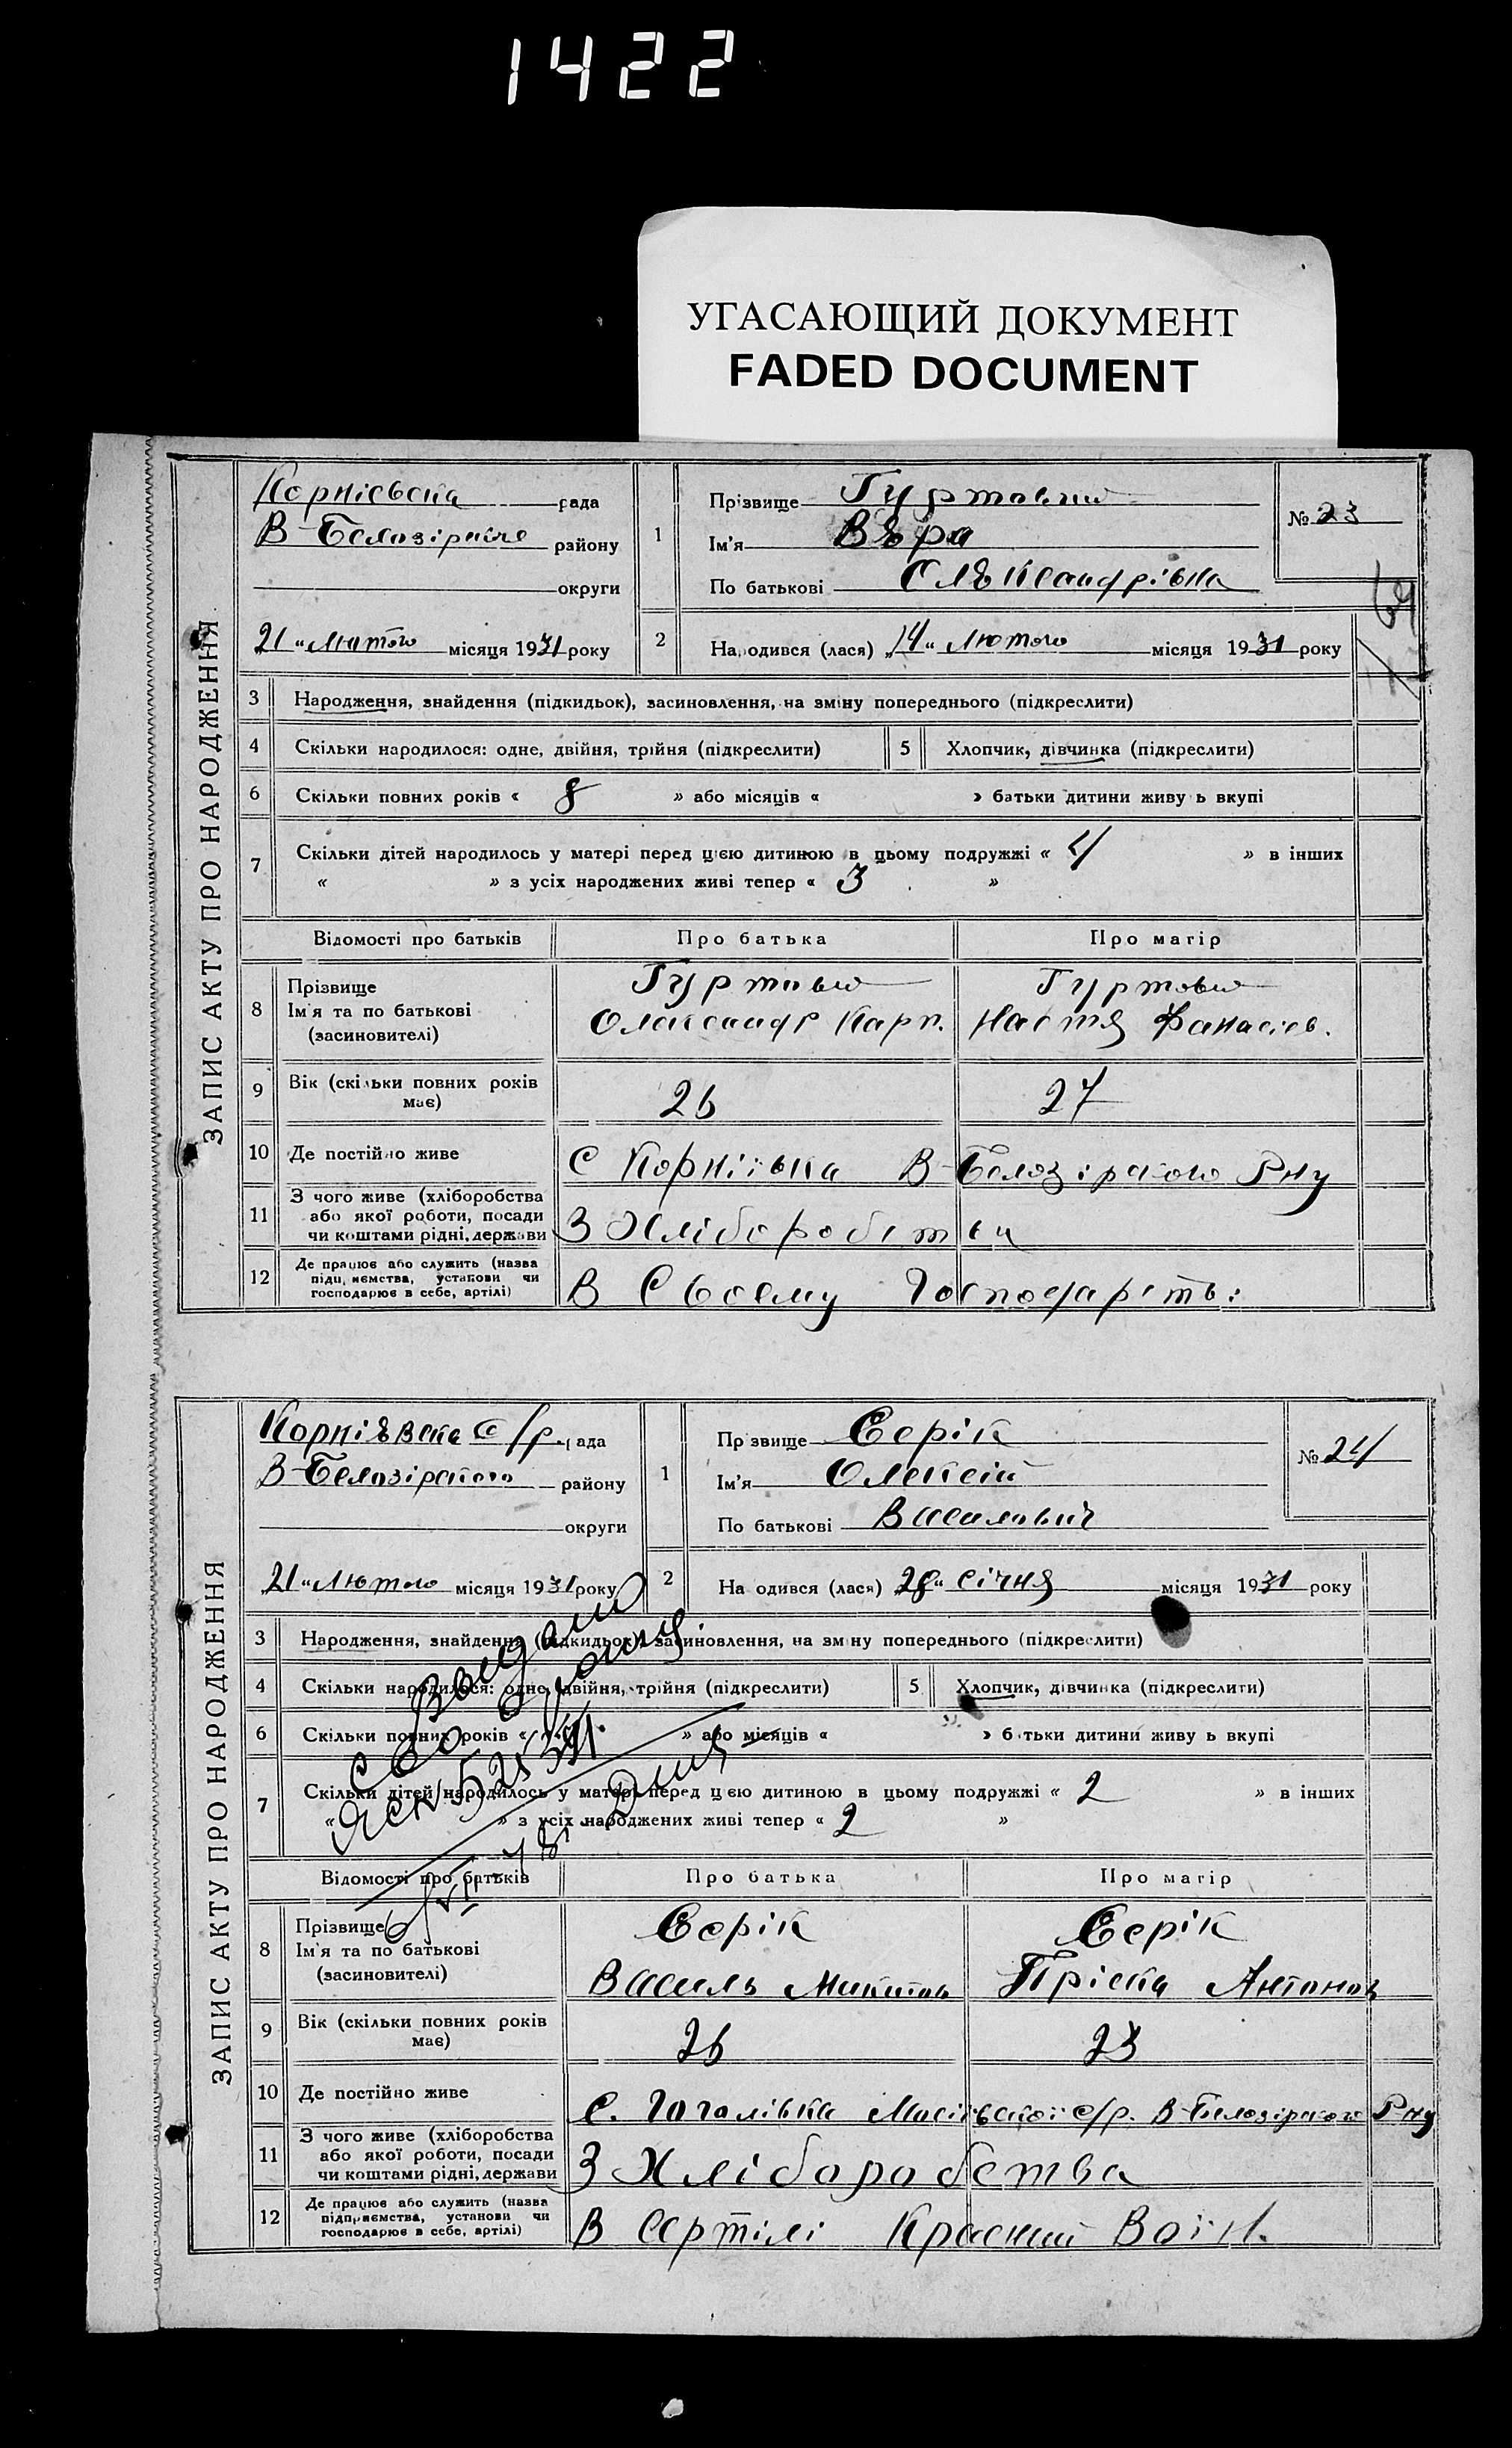 1422
УГАСАЮЩИЙ ДОКУМЕНТ
FADED DOCUMENT
ЗАПИС АКТУ ПРО НАРОДЖЕННЯ
Корніевска рада
В-Белозіркаго району
округи
21 „ Лютого місяця 1931 року
1
Прізвище Гуртовий
Ім'я Вѣра
По батькові Олѣксандрівна
№ 23
2
Народився (лася) „14" Лютого місяця 1931 року
3 Народження, знайдення (підкидьок), засиновлення, на зміну попереднього (підкреслити)
4 Скільки народилося: одне, двійня, трійня (підкреслити)
5 Хлопчик, дівчинка (підкреслити)
6 Скільки повних років « 8 » або місяців « » батьки дитини живу ь вкупі
7 Скільки дітей народилось у матері перед цією дитиною в цьому подружжі « 4 » в інших
« » з усіх народжених живі тепер « 3 »
Відомості про батьків Про батька Про матір
8 Прізвище
Ім'я та по батькові
(засиновителі)
Гуртовий
Олександр Карп.
Гуртовий
Настя Фанасієв.
9 Вік (скільки повних років
має)
26 27
10 Де постійно живе
С Корніівка В-Белозіркого Рну
11 З чого живе (хліборобства
або якої роботи, посади
чи коштами рідні, держави
З Хліборобства
12 Де працює або служить (назва
підприємства, установи чи
господарює в себе, артілі)
В Своєму Господарстві
ЗАПИС АКТУ ПРО НАРОДЖЕННЯ
Корніѣвска с/р. рада
В-Белозіркого району
округи
21 „ Лютого місяця 1931 року
1
Прізвище Єерік
Ім'я Олексій
По батькові Василович
№ 24
2
Народився (лася) „28" січня місяця 1931 року
3 Народження, знайдення (підкидьок), засиновлення, на зміну попереднього (підкреслити)
4 Скільки народилося: одне, двійня, трійня (підкреслити)
5 Хлопчик, дівчинка (підкреслити)
6 Скільки повних років « » або місяців « » батьки дитини живу ь вкупі
7 Скільки дітей народилось у матері перед цією дитиною в цьому подружжі « 2 » в інших
« » з усіх народжених живі тепер « 2 »
Відомості про батьків Про батька Про матір
8 Прізвище
Ім'я та по батькові
(засиновителі)
Єерік
Василь Микитов
Єерік
Пріська Антонов
9 Вік (скільки повних років
має)
26 23
10 Де постійно живе
С. Гоголівка с/р. В-Белозіркого Рну
11 З чого живе (хліборобства
або якої роботи, посади
чи коштами рідні, держави
З Хліборобства
12 Де працює або служить (назва
підприємства, установи чи
господарює в себе, артілі)
В Сартілі Красний Воїн.